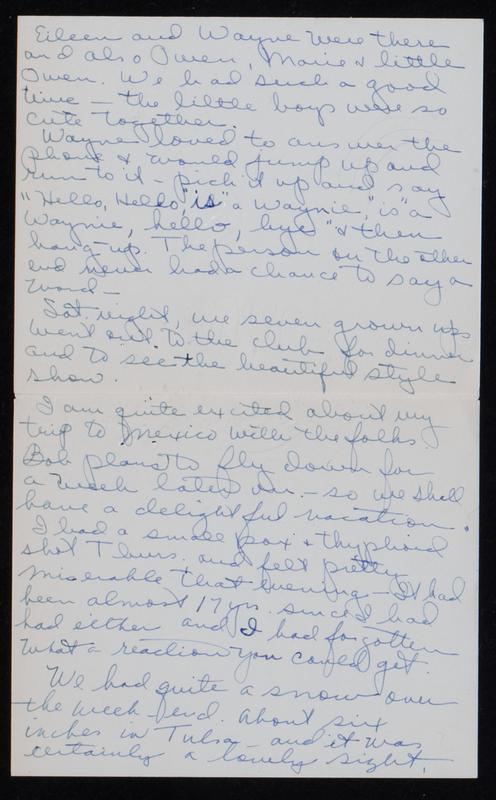 Eileen and Wayne were there
and also Owen, Marie & little
Owen. We had such a good
time — the little boys were so
cute together.
Wayne loved to answer the
phone & would jump up and
run to it - pick it up and say
"Hello, Hello, is a Waynie," is "a
Waynie, hello, bye" & then
hang-up. The person on the other
end never had a chance to say a
word —
Sat. night, we seven grown ups
went out to the club for dinner
and to see the beautiful style
show.
I am quite excited about my
trip to Mexico with the folks.
Bob plans to fly down for
a week later on. - so we shall
have a delightful vacation.
I had a small pox & thyphoid
shot Thurs. and felt pretty
miserable that evening - It had
been almost 17 yrs. since I had
had either and I had forgotten
what a reaction you could get.
We had quite a snow over
the week-end. About six
inches in Tulsa - and it was
certainly a lovely sight.